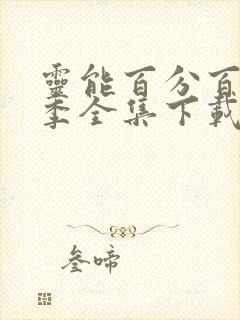 靈能百分百
季全集下載
叁啼